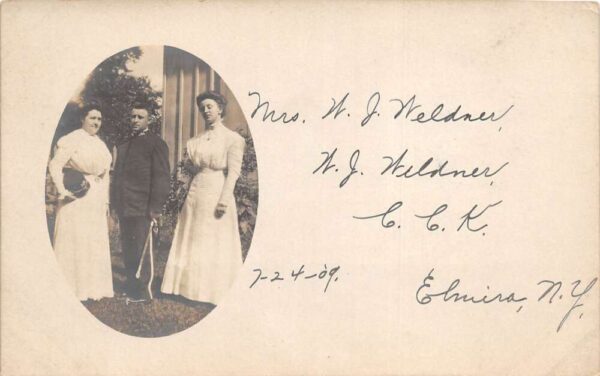 Mrs. W. J. Weldner,
W. J. Weldner,
C. C. K.
7-24-09.
Elmira, N.Y.